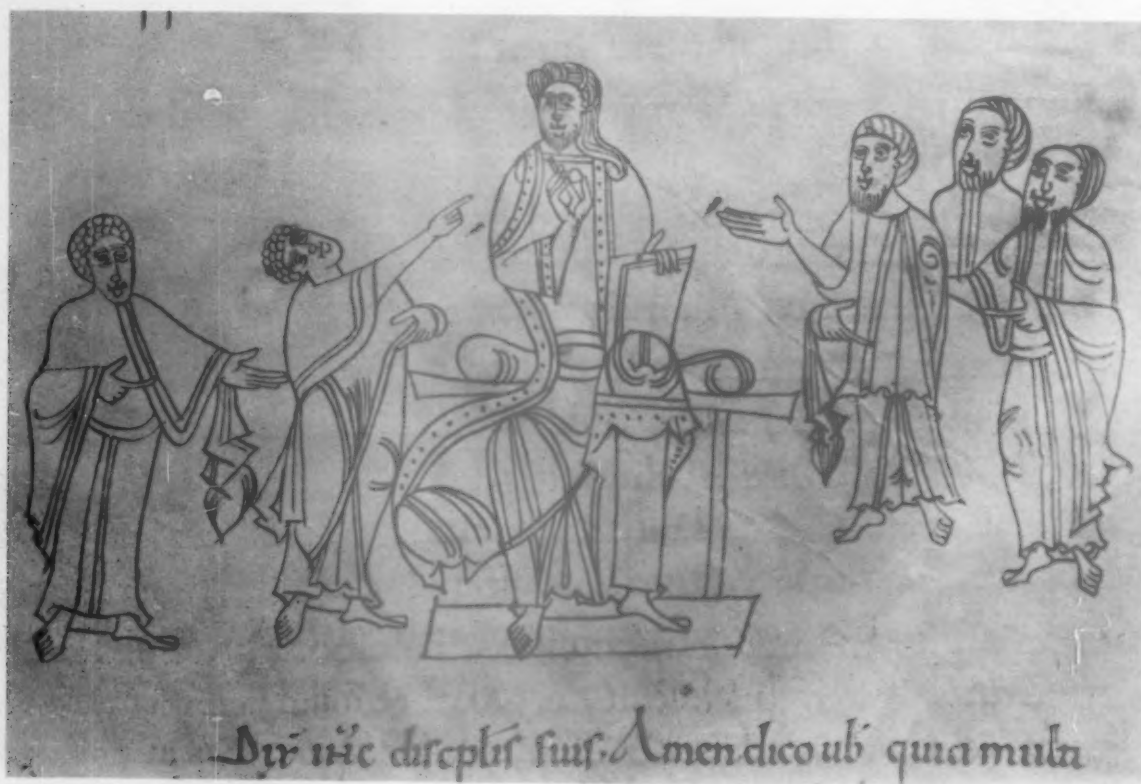 Dix̄ ih̄c discpl̄is suis· Amen dico ub̄ quia multi